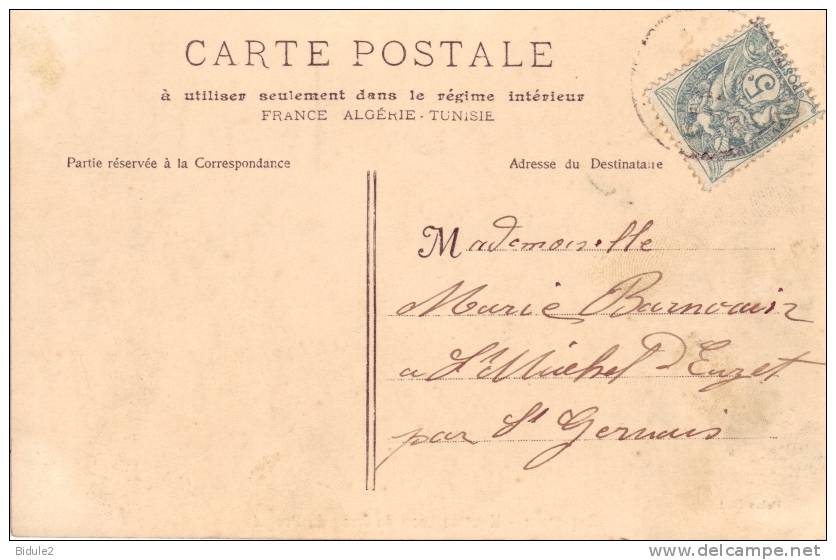 CARTE POSTALE
à utiliser seulement dans le régime intérieur
FRANCE ALGÉRIE - TUNISIE
Partie réservée à la Correspondance
Adresse du Destinataire
5
Mademoiselle
Marie
a St Michel D'Euzet
par St Gervais
Bidule2
www.delcampe.net